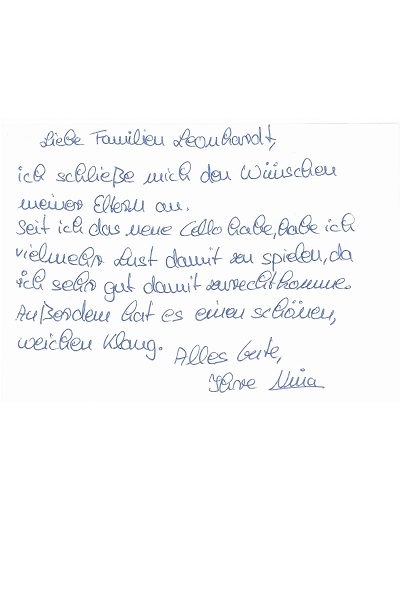 Liebe Familien Leonhardt,
ich schließe mich den Wünschen
meiner Eltern an.
Seit ich das neue Cello habe, habe ich
vielmehr Lust damit zu spielen, da
ich sehr gut damit zurechtkomme.
Außerdem hat es einen schönen,
weichen Klang.
Alles Gute,
Ihre Nina